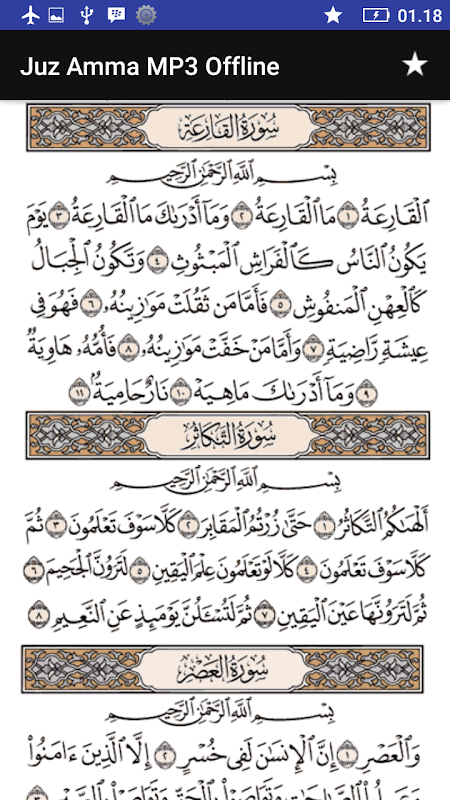 01.18
Juz Amma MP3 Offline
سُورَةُ القَارِعَةِ
بِسْمِ ٱللَّهِ ٱلرَّحْمَٰنِ ٱلرَّحِيمِ
ٱلْقَارِعَةُ ١ مَا ٱلْقَارِعَةُ ٢ وَمَآ أَدْرَىٰكَ مَا ٱلْقَارِعَةُ ٣ يَوْمَ
يَكُونُ ٱلنَّاسُ كَٱلْفَرَاشِ ٱلْمَبْثُوثِ ٤ وَتَكُونُ ٱلْجِبَالُ
كَٱلْعِهْنِ ٱلْمَنفُوشِ ٥ فَأَمَّا مَن ثَقُلَتْ مَوَٰزِينُهُۥ ٦ فَهُوَ فِى
عِيشَةٍ رَّاضِيَةٍ ٧ وَأَمَّا مَنْ خَفَّتْ مَوَٰزِينُهُۥ ٨ فَأُمُّهُۥ هَاوِيَةٌ
٩ وَمَآ أَدْرَىٰكَ مَاهِيَهْ ١٠ نَارٌ حَامِيَةٌۢ ١١
سُورَةُ التَّكَاثُرِ
بِسْمِ ٱللَّهِ ٱلرَّحْمَٰنِ ٱلرَّحِيمِ
أَلْهَىٰكُمُ ٱلتَّكَاثُرُ ١ حَتَّىٰ زُرْتُمُ ٱلْمَقَابِرَ ٢ كَلَّا سَوْفَ تَعْلَمُونَ ٣ ثُمَّ
كَلَّا سَوْفَ تَعْلَمُونَ ٤ كَلَّا لَوْ تَعْلَمُونَ عِلْمَ ٱلْيَقِينِ ٥ لَتَرَوُنَّ ٱلْجَحِيمَ ٦
ثُمَّ لَتَرَوُنَّهَا عَيْنَ ٱلْيَقِينِ ٧ ثُمَّ لَتُسْـَٔلُنَّ يَوْمَئِذٍ عَنِ ٱلنَّعِيمِ ٨
سُورَةُ العَصْرِ
بِسْمِ ٱللَّهِ ٱلرَّحْمَٰنِ ٱلرَّحِيمِ
وَٱلْعَصْرِ ١ إِنَّ ٱلْإِنسَٰنَ لَفِى خُسْرٍ ٢ إِلَّا ٱلَّذِينَ ءَامَنُوا۟